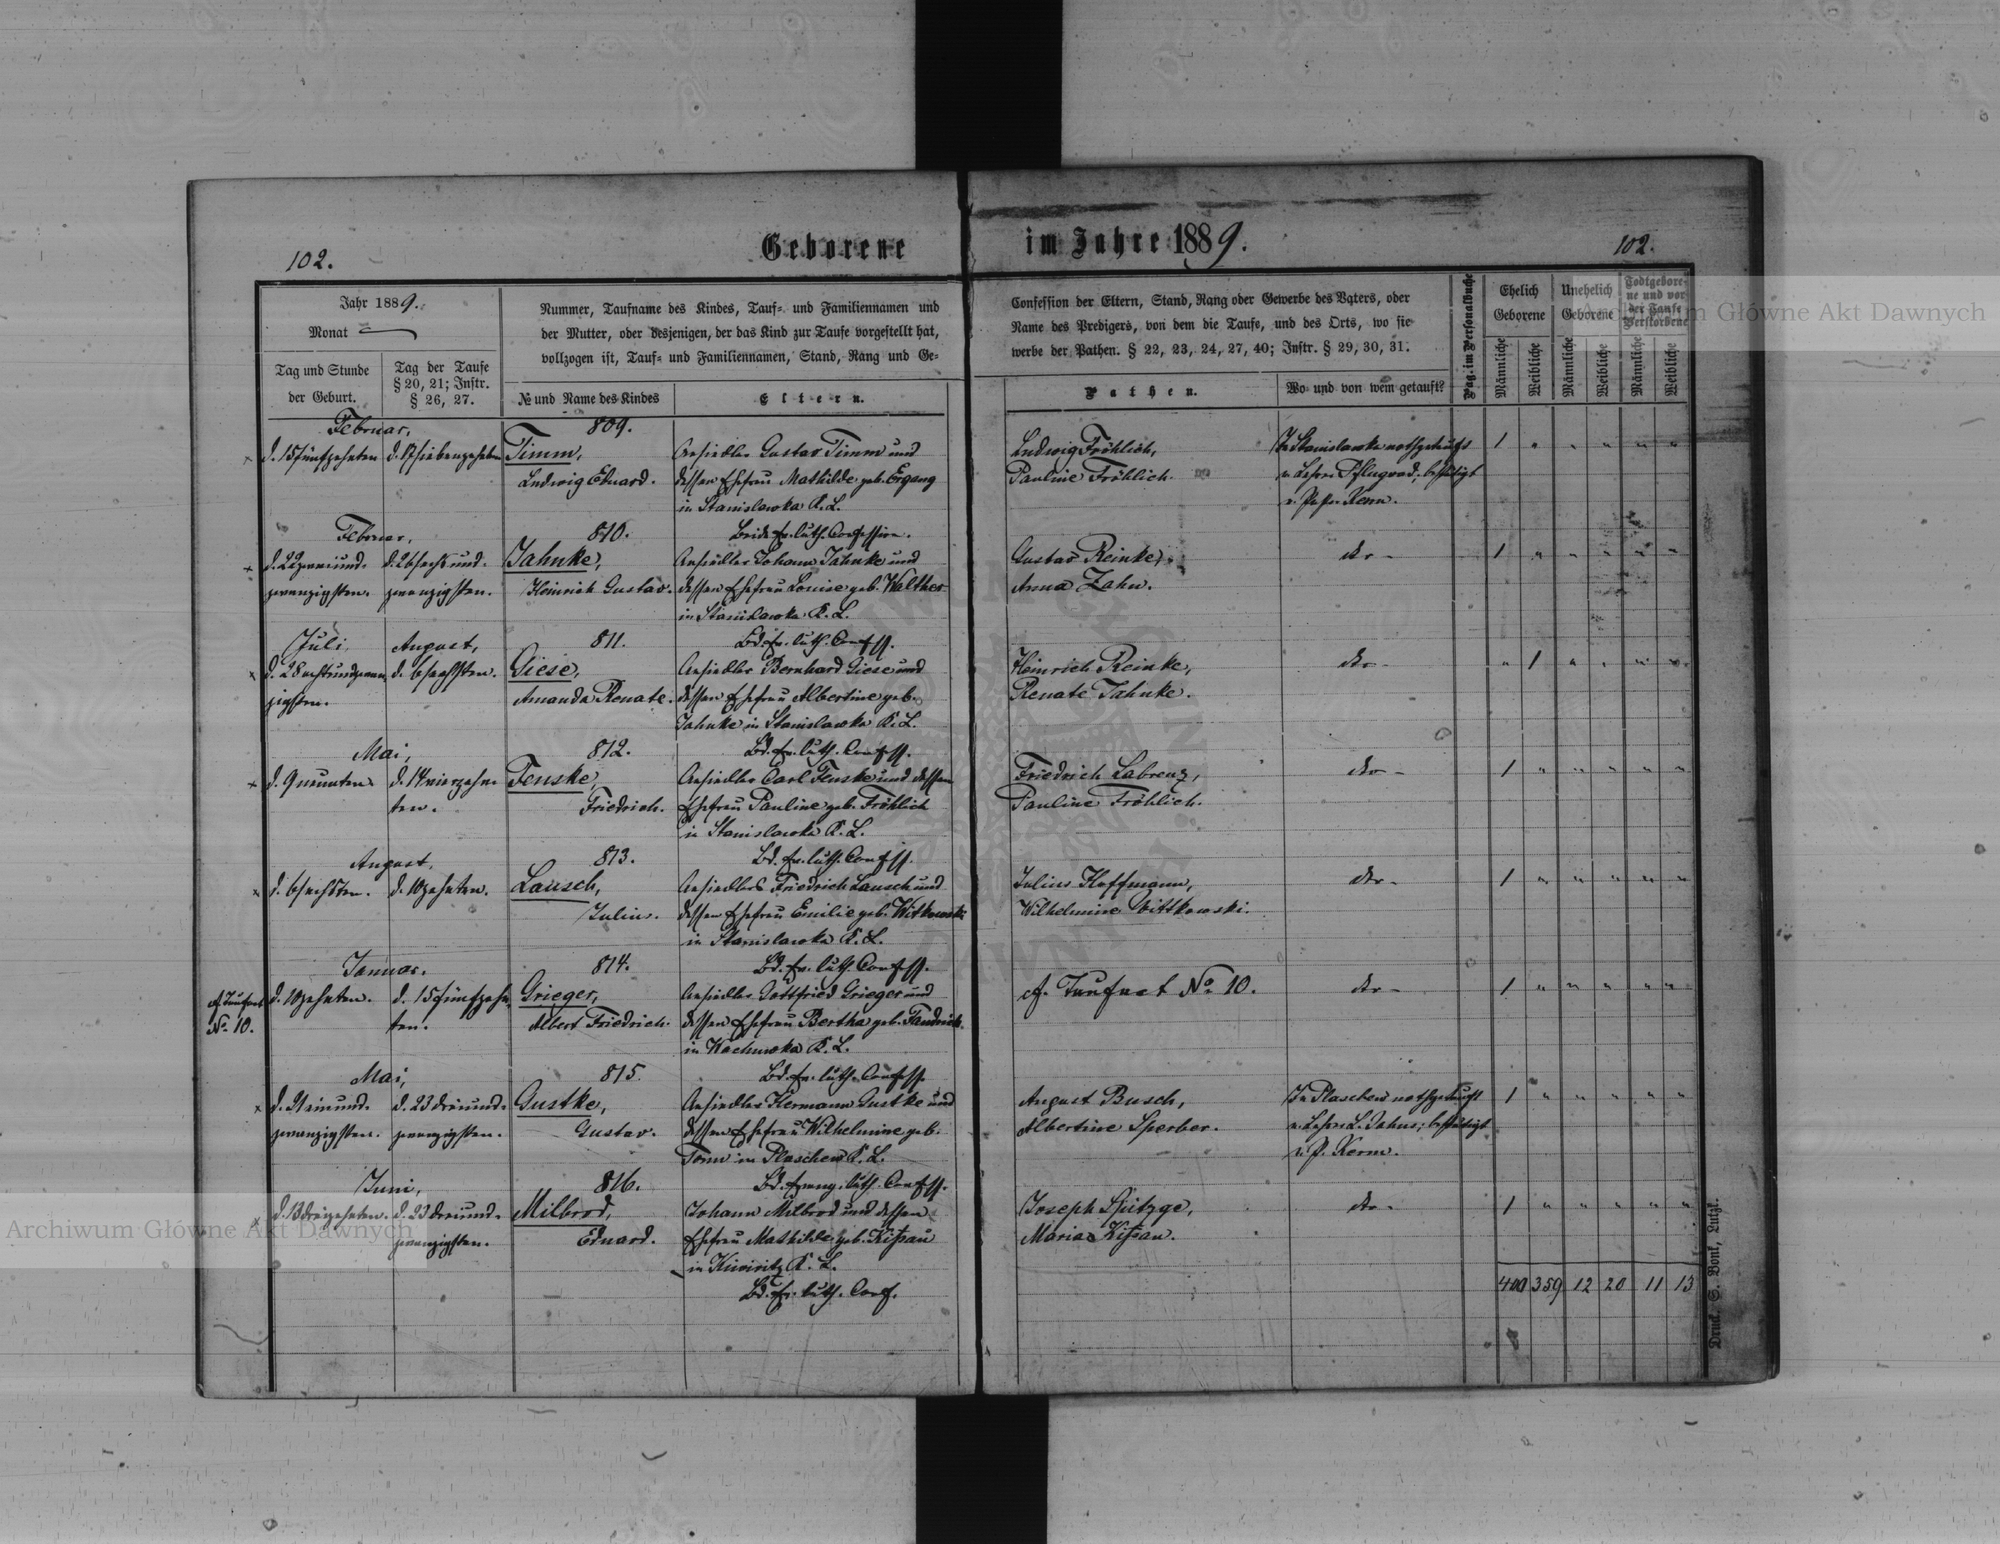 102.
Geborene
im Jahre 1889.
102.
Jahr 1889.
Monat
Tag und Stunde
der Geburt.
Tag der Taufe
§ 20, 21; Instr.
§ 26, 27.
Nummer, Taufname des Kindes, Tauf- und Familiennamen und
der Mutter, oder desjenigen, der das Kind zur Taufe vorgestellt hat,
vollzogen ist, Tauf- und Familiennamen, Stand, Rang und Ge-
№ und Name des Kindes
Eltern.
Confession der Eltern, Stand, Rang oder Gewerbe des Vaters, oder
Name des Predigers, von dem die Taufe, und des Orts, wo sie
werbe der Pathen. § 22, 23, 24, 27, 40; Instr. § 29, 30, 31.
Pathen.
Wo und von wem getauft?
Pag. im Personalbuche
Ehelich
Geborene
Unehelich
Geborene
Todtgebore-
ne und vor
der Taufe
Verstorbene
Männliche
Weibliche
Männliche
Weibliche
Männliche
Weibliche
Februar,
809.
d. 15 fünfzehnten d. 17 siebenzehnten Timm, Ansiedler Gustav Timm und
Ludwig Eduard. dessen Ehefrau Mathilde geb. Ergang
in Stanislawka K. L.
Ludwig Fröhlich, In Stanislawka nothgetauft 1 " " " " "
Pauline Fröhlich. v. Lehrer Pflugrad; bestätigt
v. Past. Kerm.
Februar, 810. Beide ev. luth. Confession.
d. 22 zweiund- d. 26 sechsund- Jahnke, Ansiedler Johann Jahnke und
zwanzigsten. zwanzigsten. Heinrich Gustav. dessen Ehefrau Louise geb. Walther
in Stanislawka K. L.
Gustav Reinke, dto - 1 " " " " "
Anna Zahn.
Juli, August, 811. Bd. ev. luth. Conf.
d. 28 achtundzwan- d. 6 sechsten. Giese, Ansiedler Bernhard Giese und
zigsten. Amanda Renate. dessen Ehefrau Albertine geb.
Jahnke in Stanislawka K. L.
Heinrich Reinke, dto - " 1 " " " "
Renate Jahnke.
Mai, 812. Bd. ev. luth. Conf.
d. 9 neunten d. 14 vierzehn- Fenske, Ansiedler Carl Fenske und dessen
ten. Friedrich. Ehefrau Pauline geb. Fröhlich
in Stanislawka K. L.
Friedrich Labrenz, dto - 1 " " " " "
Pauline Fröhlich.
August, 813. Bd. ev. luth. Conf.
d. 6 sechsten. d. 10 zehnten. Lausch, Ansiedlers Friedrich Lausch und
Julius. dessen Ehefrau Emilie geb. Witkowski
in Stanislawka K. L.
Julius Hoffmann, dto - 1 " " " " "
Wilhelmine Wittkowski.
Januar. 814. Bd. ev. luth. Conf.
cf. Taufact d. 10 zehnten. d. 15 fünfzehn- Grieger, Ansiedler Gottfried Grieger und
No. 10. ten. Albert Friedrich. dessen Ehefrau Bertha geb.
in K. L.
cf. Taufact No. 10. dto - 1 " " " " "
Mai, 815. Bd. ev. luth. Conf.
d. 21 einund- d. 23 dreiund- Gustke, Ansiedler Hermann Gustke und
zwanzigsten. zwanzigsten. Gustav. dessen Ehefrau Wilhelmine geb.
in K. L.
August Busch, In nothgetauft 1 " " " " "
Albertine Sperber. v. Lehrer L. Jahns; bestätigt
v. P. Kerm.
Juni, 816. Bd. evang. luth. Conf.
d. 13 dreizehnten. d. 23 dreiund- Milbrod, Johann Milbrod und dessen
zwanzigsten. Eduard. Ehefrau Mathilde geb. Kißau
in K. L.
Bd. ev. luth. Conf.
Joseph Spitzge, dto - 1 " " " " "
Maria Kißau.
400 359 12 20 11 13
Druck. S. Bonk, Lutzk.
Archiwum Główne Akt Dawnych
Archiwum Główne Akt Dawnych